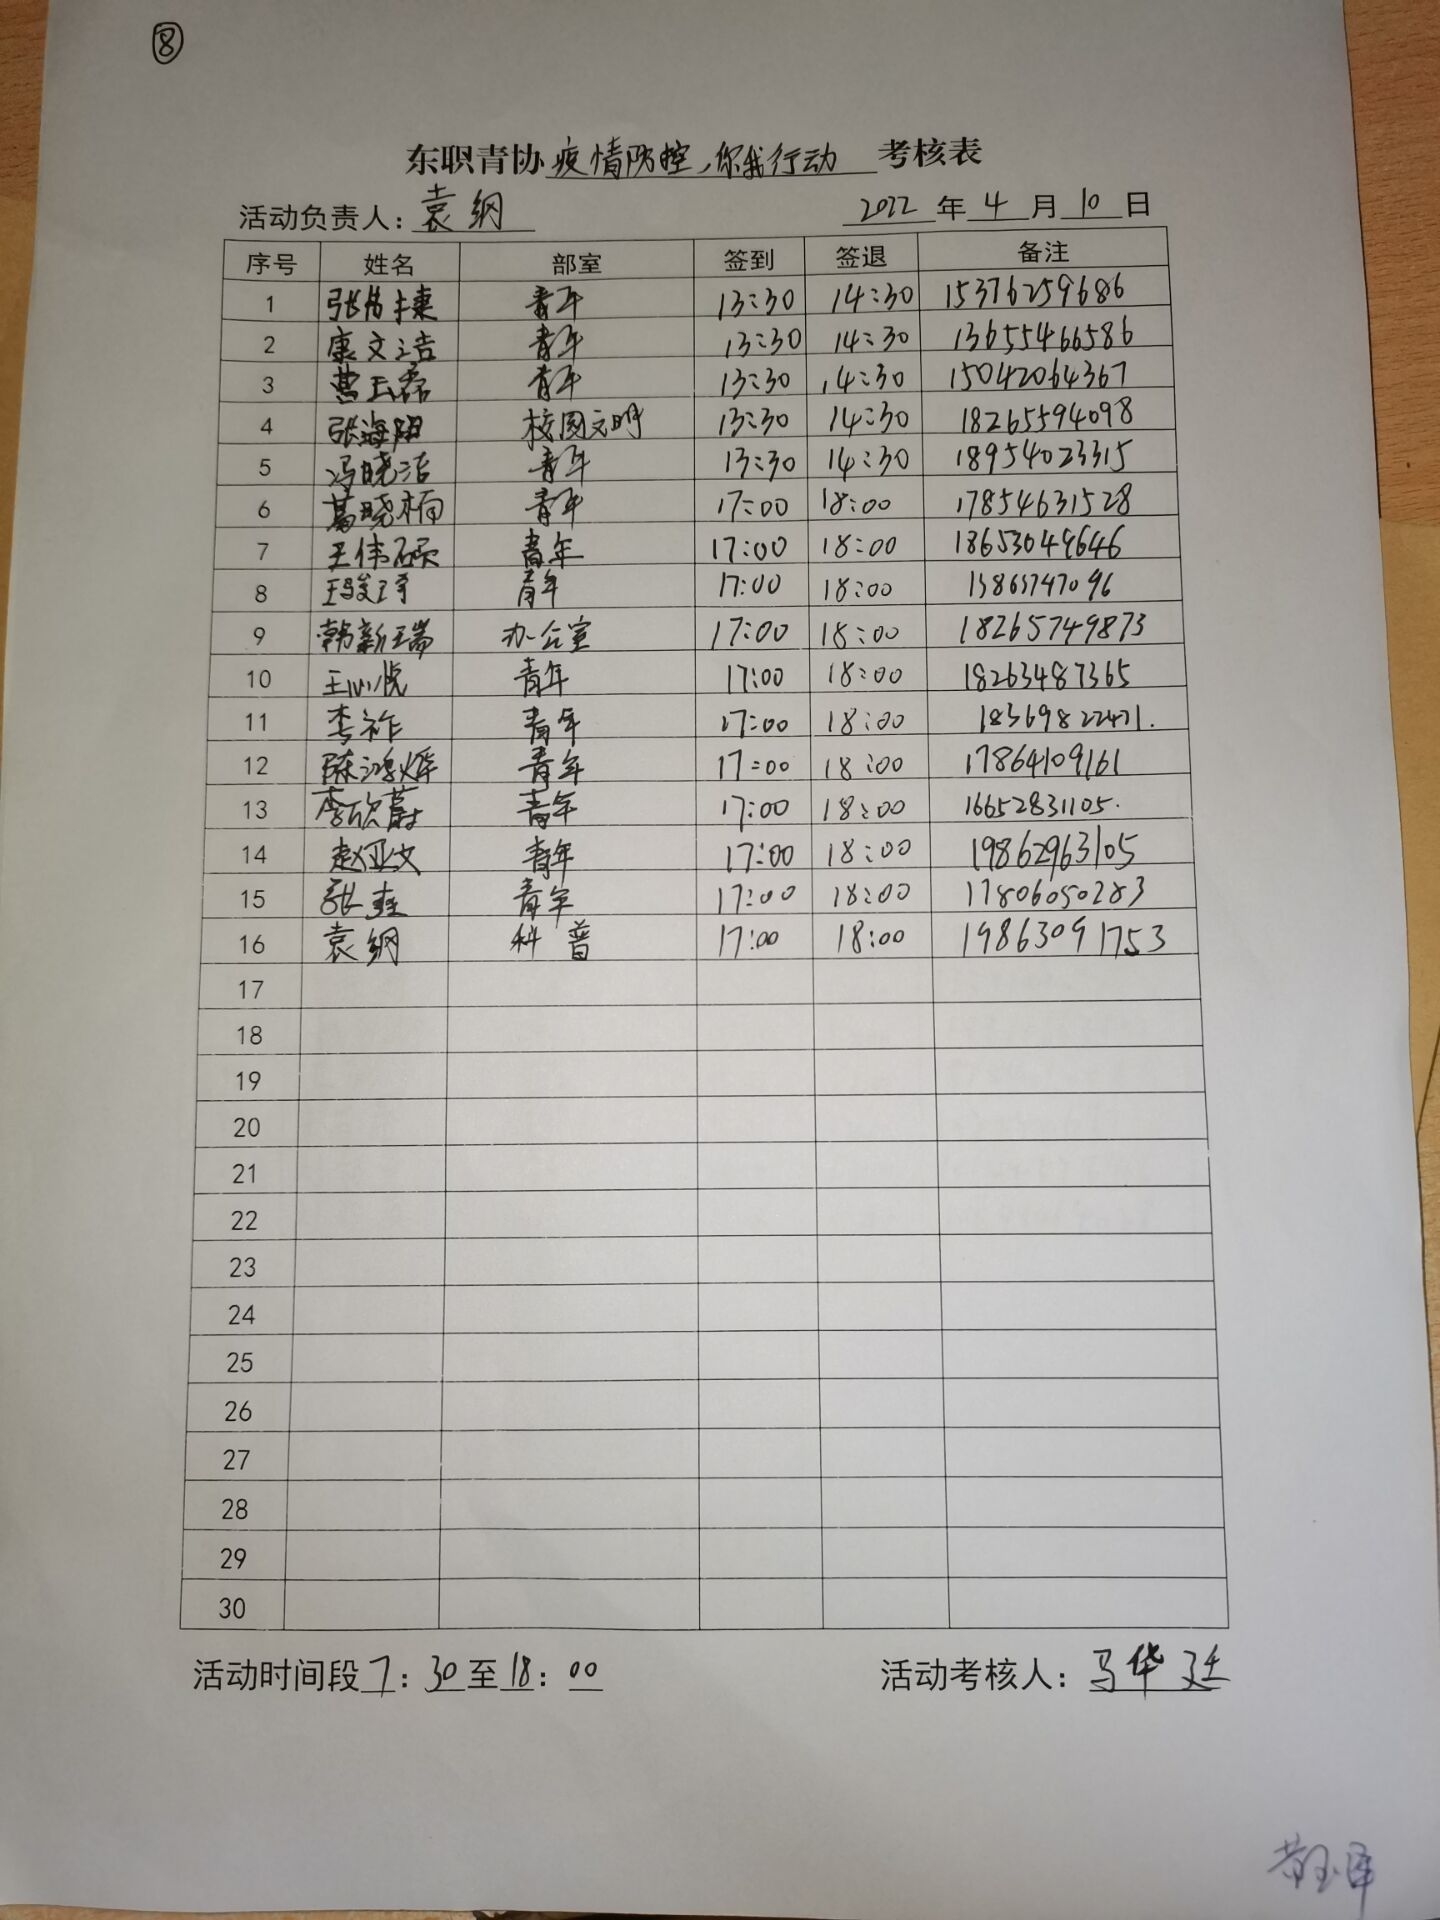 ⑧
东职青协疫情防控,你我行动 考核表
活动负责人:袁纲 2022 年 4 月 10 日
序号 姓名 部室 签到 签退 备注
1 青年 13:30 14:30 15376259686
2 康文洁 青年 13:30 14:30 13655466586
3 青年 13:30 14:30 15042064367
4 张海阳 校园文明 13:30 14:30 18265594098
5 冯晓洁 青年 13:30 14:30 18954023315
6 葛晓楠 青年 17:00 18:00 17854631528
7 王伟硕 青年 17:00 18:00 18653049646
8 青年 17:00 18:00 13863747096
9 韩新瑞 办公室 17:00 18:00 18265749873
10 王心悦 青年 17:00 18:00 18263487365
11 李祚 青年 17:00 18:00 18369822471.
12 青年 17:00 18:00 17864109161
13 李欣蔚 青年 17:00 18:00 16652831105.
14 赵亚文 青年 17:00 18:00 19862963105
15 青年 17:00 18:00 17806050283
16 袁纲 科普 17:00 18:00 19863091753
17
18
19
20
21
22
23
24
25
26
27
28
29
30
活动时间段 7:30 至 18:00 活动考核人:马华廷